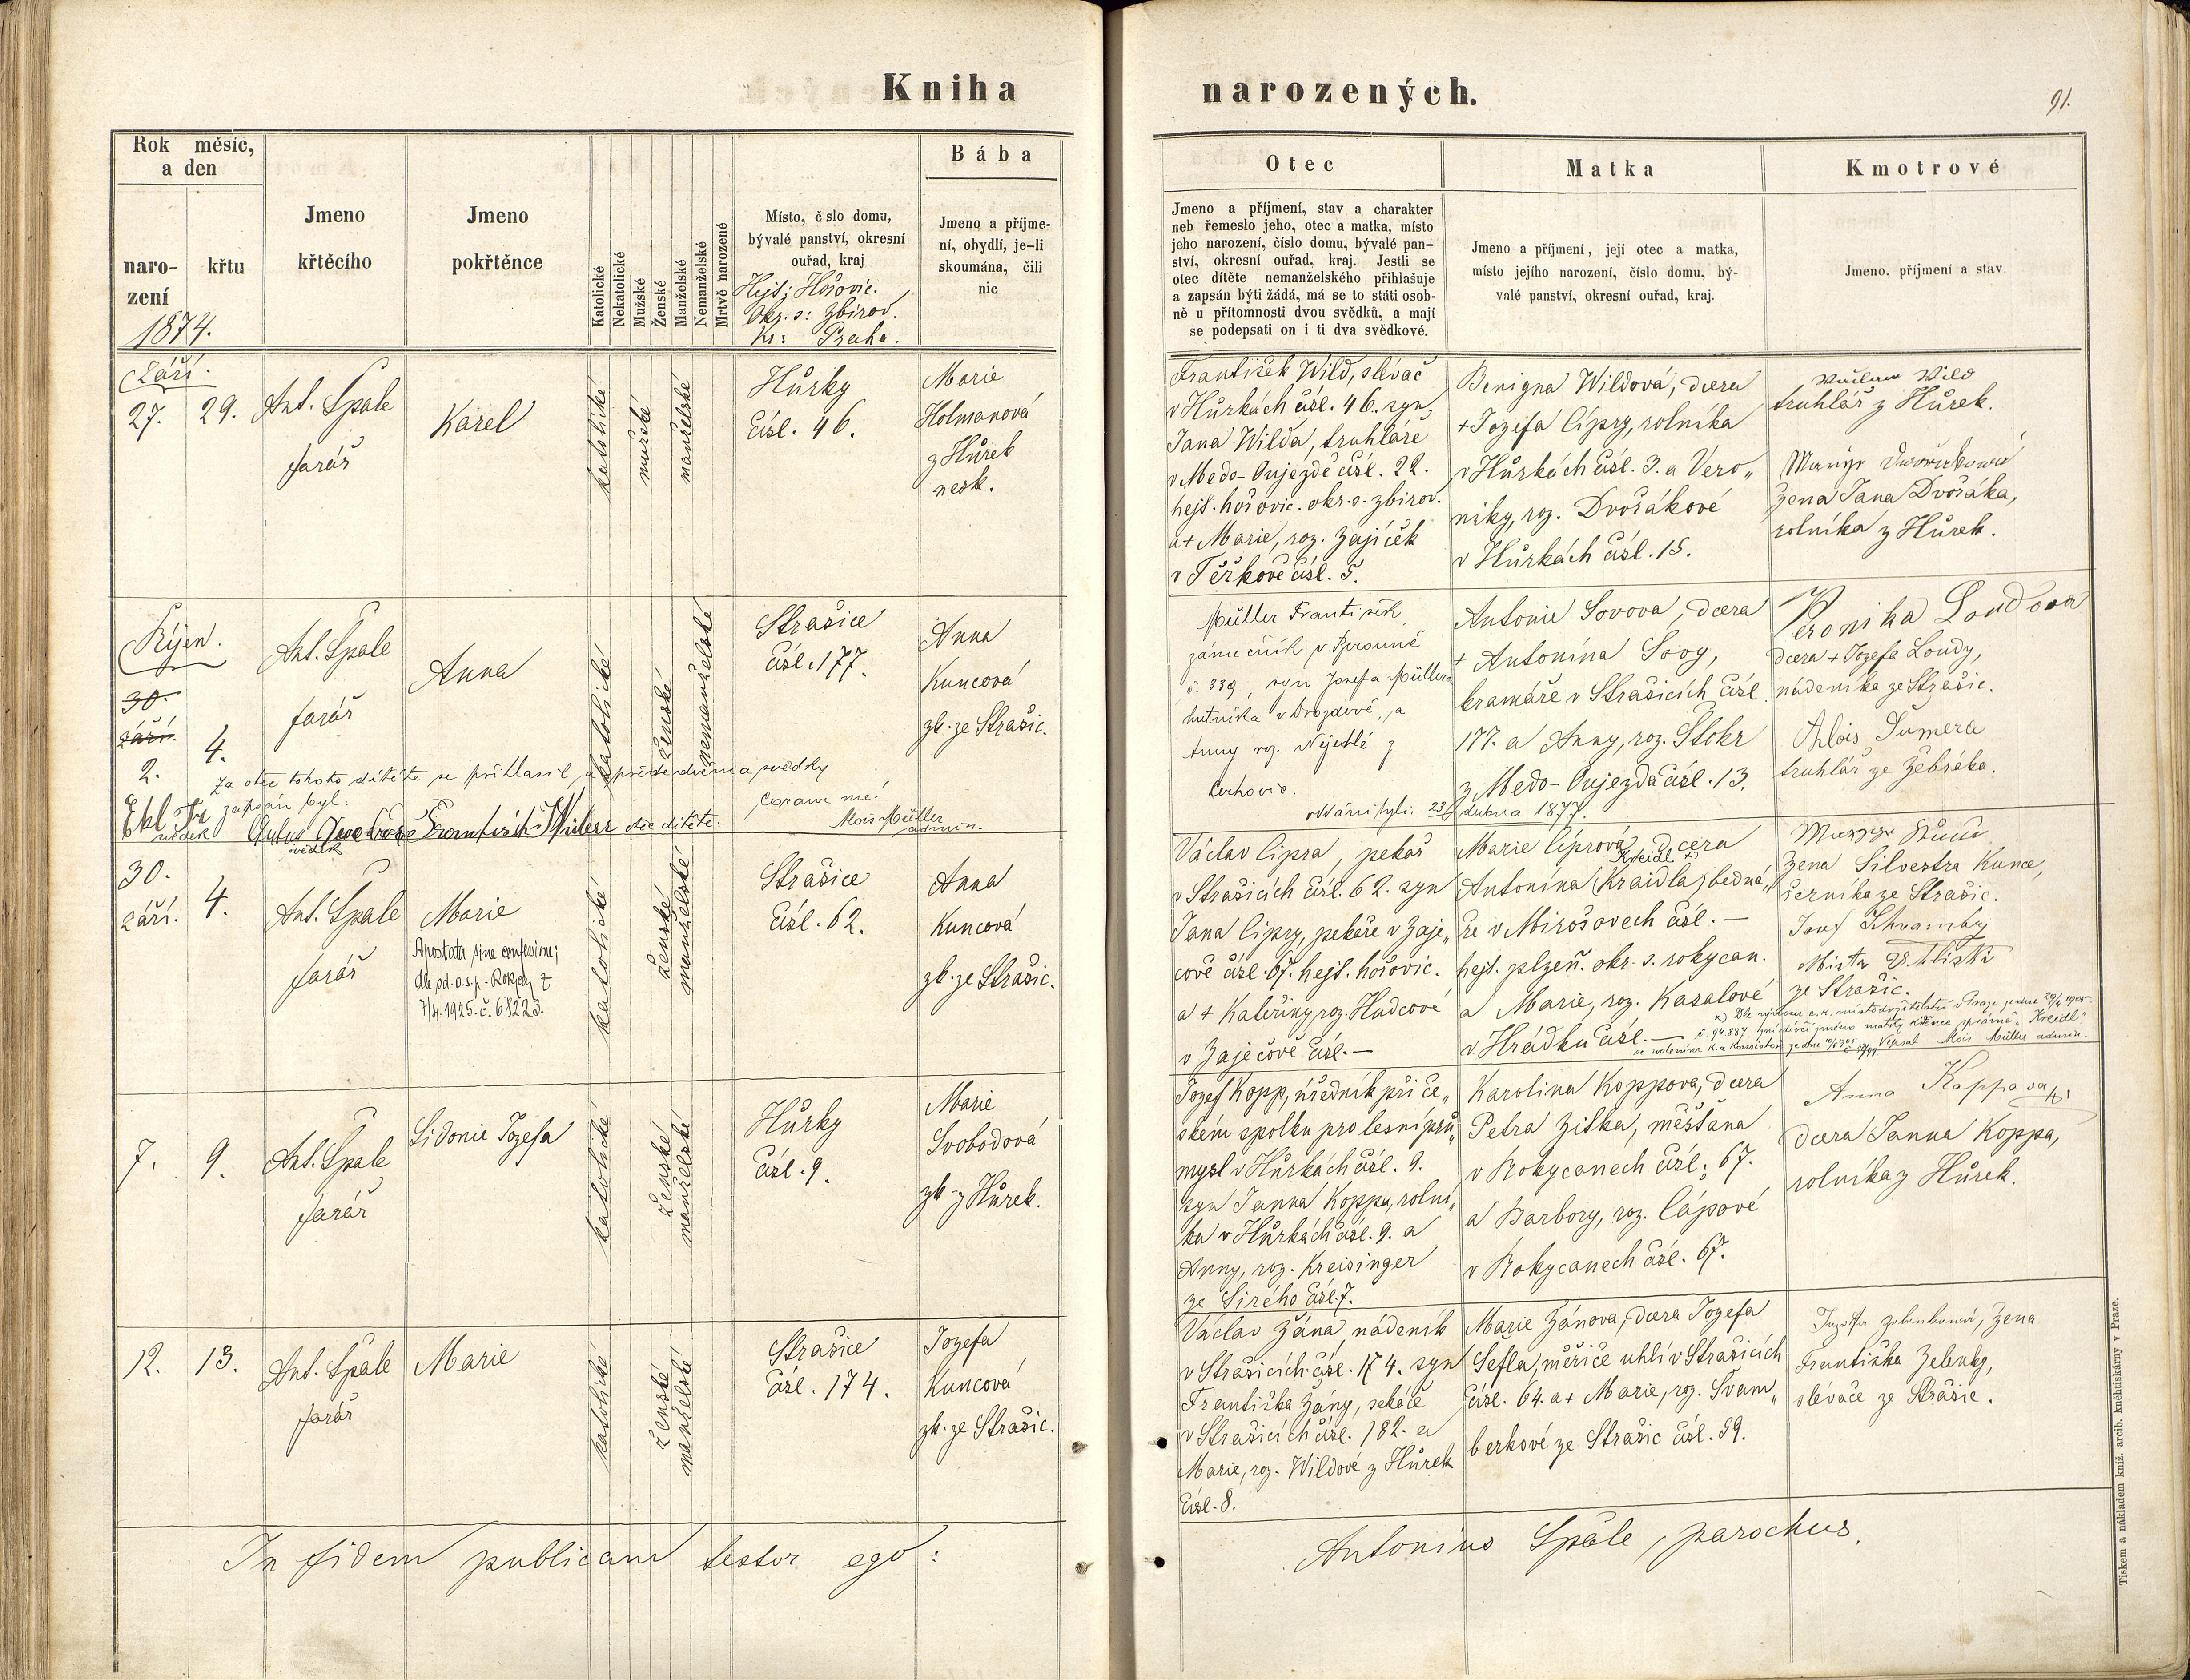 Kniha
narozených.
91.
Rok měsíc,
a den
naro-
zení
křtu
1874.
Jmeno
křtěcího
Jmeno
pokřtěnce
Katolické
Nekatolické
Mužské
Ženské
Manželské
Nemanželské
Mrtvě narozené
Místo, č slo domu,
bývalé panství, okresní
ouřad, kraj
Hejt: Hořovic.
Okr. s: Zbirov.
Kr: Praha.
Bába
Jmeno a příjme-
ní, obydlí, je-li
skoumána, čili
nic
Otec
Jmeno a příjmení, stav a charakter
neb řemeslo jeho, otec a matka, místo
jeho narození, číslo domu, bývalé pan-
ství, okresní ouřad, kraj. Jestli se
otec dítěte nemanželského přihlašuje
a zapsán býti žádá, má se to státi osob-
ně u přítomnosti dvou svědků, a mají
se podepsati on i ti dva svědkové.
Matka
Jmeno a příjmení, její otec a matka,
místo jejího narození, číslo domu, bý-
valé panství, okresní ouřad, kraj.
Kmotrové
Jmeno, příjmení a stav
Září.
27.
29.
Ant. Špale
farář
Karel
katolické
mužské
manželské
Hůrky
čísl. 46.
Marie
Holmanová
z Hůrek
nesk.
František Wild, slévač
v Hůrkách čísl. 46. syn
Jana Wilda, truhláře
v Medo-Oujezdě čísl. 22.
hejt. hořovic. okr. s. zbirov.
a + Marie, roz. Zajíček
v Těškově čísl. 5.
Benigna Wildová, dcera
+ Jozefa Cípry, rolníka
v Hůrkách čísl. 3. a Vero„
niky, roz. Dvořákové
v Hůrkách čísl. 15.
Václav Wild
truhlář z Hůrek.
žena Jana Dvořáka,
rolníka z Hůrek.
Říjen.
30.
září.
2.
4.
Ant. Špale
farář
Anna
katolické
ženské
nemanželské
Strašice
čísl. 177.
Anna
Kuncová
zk. ze Strašic.
Müller František,
zámečník v Berouně
č. 338., syn Josefa Müllera
hutníka v Drozdově, a
Anny roz. Nejedlé z
Cerhovic.
oddáni byli: 23/ dubna 1877.
Antonie Sovova, dcera
+ Antonína Sovy,
kramáře v Strašicích čísl.
177. a Anny, roz. Štokr
z Medo-Oujezda čísl. 13.
Veronika Loudova
dcera + Jozefa Loudy,
nádeníka ze Strašic.
Alois Šumera
truhlář ze Žebráka.
Za otce tohoto dítěte se přihlásil, a předevedenými svědky
zapsán byl:
svědek
František Müller otec dítěte:
svědek
Coram me!
Alois Müller
admin.
30.
září.
4.
Ant. Špale
farář
Marie
Apostata sine confessione;
dle sd. o. s. p. Rokycany z
7/4. 1925. č. 68223.
katolické
ženské
manželské
Strašice
čísl. 62.
Anna
Kuncová
zk. ze Strašic.
Václav Cípra, pekař
v Strašicích čísl. 62. syn
Jana Cípry, pekaře v Zaje„
čově čísl. 67. hejt. hořovic.
a + Kateřiny, roz. Hudcové
v Zaječově čísl. —
Marie Cíprová, dcera
Kreidl x)
Antonína (Kraidla) bedná„
ře v Mirošovech čísl. —
hejt. plzeň. okr. s. rokycan.
a Marie, roz. Kasalové
v Hrádku čísl. —
žena Silvestra Kunce,
černíka ze Strašic.
Josef Schramhy
ze Strašic.
x) Dle výnosu c. k. místodržitelství v Praze
č. 94.887 zní dívčí jméno matky křtěnce správně „Kreidl“
Vepsal Alois Müller admin.
7.
9.
Ant. Špale
farář
Sidonie Jozefa
katolické
ženské
manželské
Hůrky
čísl. 9.
Marie
Svobodová
zk. z Hůrek.
Jozef Kopp, úředník při če„
ském spolku pro lesní prů„
mysl v Hůrkách čísl. 9.
syn Janna Koppa, rolní„
ka v Hůrkách čísl. 9. a
Anny, roz. Kreisinger
ze Sirého čísl. 7.
Karolina Koppova, dcera
Petra Zitka, měšťana
v Rokycanech čísl. 67.
a Barbory, roz. Cápové
v Rokycanech čísl. 67.
Anna Koppova
dcera Janna Koppa,
rolníka z Hůrek.
12.
13.
Ant. Špale
farář
Marie
katolické
ženské
manželské
Strašice
čísl. 174.
Jozefa
Kuncová
zk. ze Strašic.
Václav Zána, nádeník
v Strašicích čísl. 174. syn
Františka Zány, sekáče
v Strašicích čísl. 182. a
Marie, roz. Wildové z Hůrek
čísl. 8.
Marie Zánova, dcera Jozefa
Šefla, měřiče uhlí v Strašicích
čísl. 64. a + Marie, roz. Švam„
berkové ze Strašic čísl. 59.
žena
Františka Zelenky,
slévače ze Strašic.
In fidem publicam testor ego:
Antonius Špale, parochus.
Tiskem a nákladem kníž. arcib. knihtiskárny v Praze.